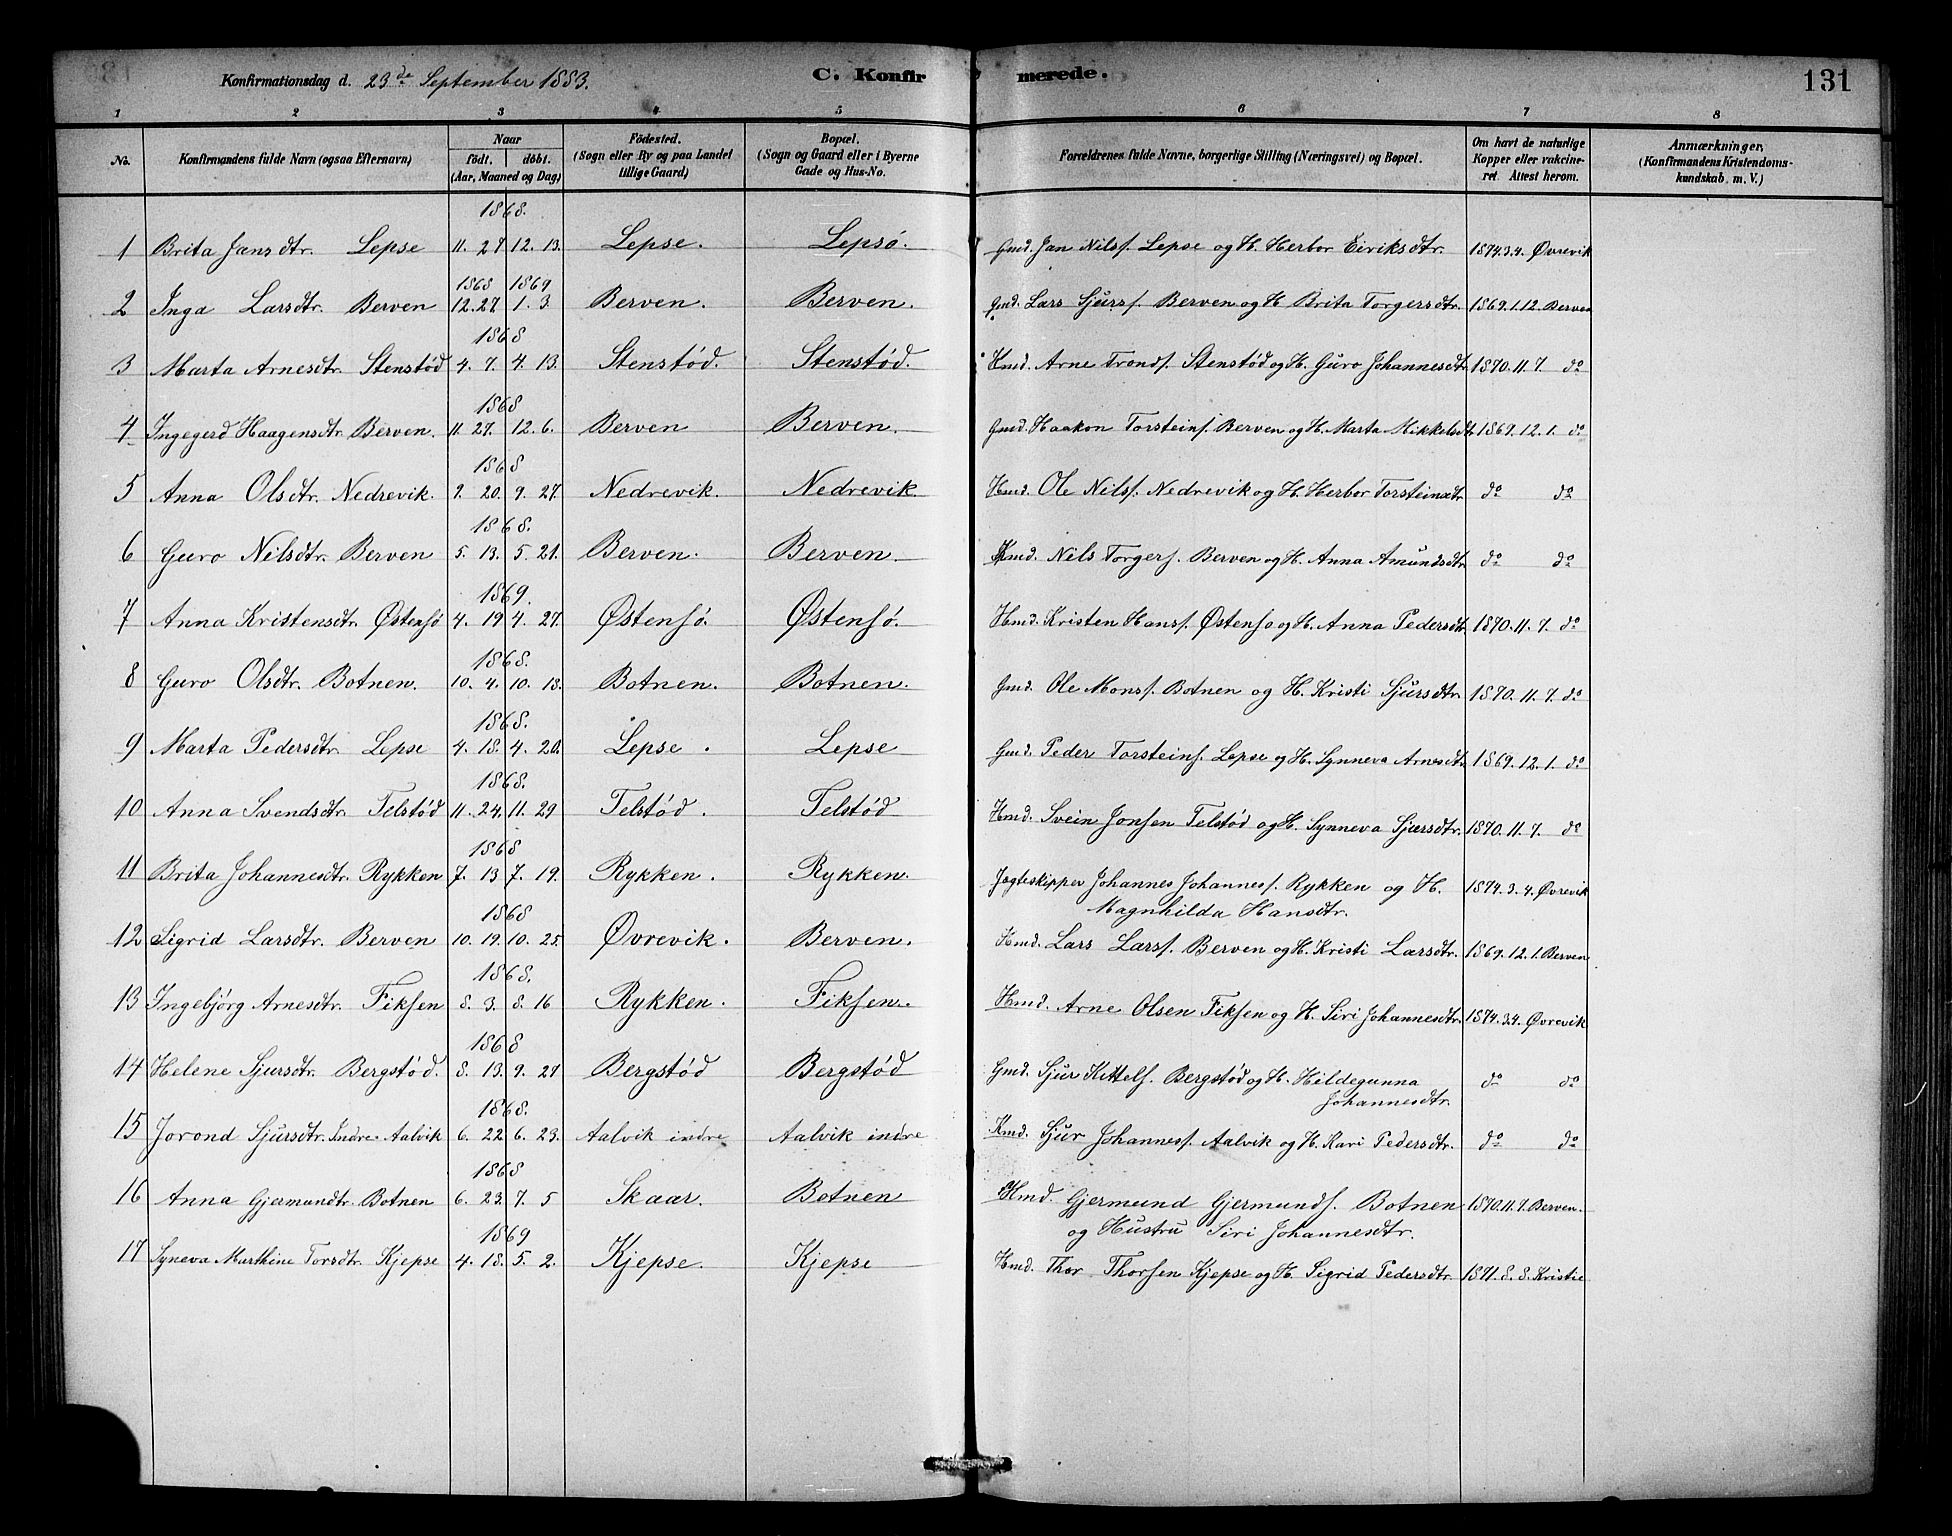 Konfirmationsdag d. 23de September 1883. C. Konfirmerede. 131
1 2 3 4 5 6 7 8
No. Konfirmandens fulde Navn (ogsaa Efternavn) Naar født, døbt. (Aar, Maaned og Dag) Fødested. (Sogn eller By og paa Landet tillige Gaard) Bopæl. (Sogn og Gaard eller i Byerne Gade og Hus-No. Forældrenes fulde Navne, borgerlige Stilling (Næringsvei) og Bopæl. Om havt de naturlige Kopper eller vakcineret. Attest herom. Anmærkninger. (Konfirmandens Kristendomskundskab, m. V.)
1868.
1 Brita Jansdtr. Lepse 11. 27 12. 13. Lepse. Lepsø. Gmd. Jan Nilss. Lepse og H. Herbor Eiriksdtr. 1874.3.4. Øvrevik
1868 1869
2 Inga Larsdtr. Berven 12. 27. 1. 3 Berven. Berven. Gmd. Lars Sjurss. Berven og H Brita Torgersdtr. 1869.1.12. Berven
1868
3 Marta Arnesdtr. Stenstød 4. 7. 4. 13. Stenstød. Stenstød. Hmd. Arne Tronds. Stenstød og H. Guro Johannesdtr. 1870.11.7. do
1868
4 Ingegerd Haagensdtr. Berven. 11. 27. 12. 6. Berven Berven. Gmd. Haakon Torsteins. Berven og H. Marta Mikkelsdtr. 1869.12.1. do
1868
5 Anna Olsdtr. Nedrevik. 9. 20. 9. 27. Nedrevik. Nedrevik Hmd. Ole Nilss. Nedrevik og H. Herbor Torsteinsdtr. do do
1868.
6 Guro Nilsdtr. Berven 5. 13. 5. 21. Berven. Berven. Hmd. Nils Torgers. Berven og H. Anna Amundsdtr. do do
1869.
7 Anna Kristensdtr. Østensø 4. 19 4. 27. Østensø. Østensø. Hmd. Kristen Hanss. Østensø og H. Anna Pedersdtr. 1870.11.7. do
1868.
8 Guro Olsdtr. Botnen. 10. 4. 10. 18. Botnen. Botnen. Gmd. Ole Monss. Botnen og H. Kristi Sjursdtr. 1870.11.7. do
1868.
9 Marta Pedersdtr. Lepse 4. 18. 4. 20. Lepse. Lepse Gmd. Peder Torsteins. Lepse og H. Synneva Arnesdtr. 1869.12.1. do
1868.
10 Anna Svendsdtr. Telstød 11. 24. 11. 29 Telstød. Telstød Hmd. Svein Jonsen Telstød og H. Synneva Sjursdtr. 1870.11.7. do
1868
11 Brita Johannesdtr. Rykken 7. 13 7. 19. Rykken. Rykken. Jagteskipper Johannes Johanness. Rykken og H. 1874.3.4. Øvrevik
Magnhilda Hansdtr.
1868
12 Sigrid Larsdtr. Berven 10. 19. 10. 25. Øvrevik. Berven. Hmd. Lars Larss. Berven og H. Kristi Larsdtr. 1869.12.1. Berven
1868.
13 Ingebjørg Arnesdtr. Fiksen 8. 3. 8. 16 Rykken. Fiksen. Hmd. Arne Olsen Fiksen og H. Siri Johannesdtr. 1874.3.4. Øvrevik
1868
14 Helene Sjursdtr. Bergstød. 8. 13. 9. 27 Bergstød Bergstød Gmd. Sjur Kittels. Bergstød og H. Hildegunna do do
Johannesdtr.
1868.
15 Jorond Sjursdtr. Indre Aalvik 6. 22 6. 23. Aalvik indre Aalvik indre Hmd. Sjur Johanness. Aalvik og H. Kari Pedersdtr. do do
1868
16 Anna Gjermundtr. Botnen 6. 23. 7. 5 Skaar. Botnen Hmd. Gjermund Gjermunds. Botnen 1870.11.7. Berven.
og Hustru Siri Johannesdtr.
1869
17 Syneva Marthine Torsdtr. Kjepse 4. 18. 5. 2. Kjepse. Kjepse Hmd. Thor Thorsen Kjepse og H. Sigrid Pedersdtr. 1871.8.8. Kristie